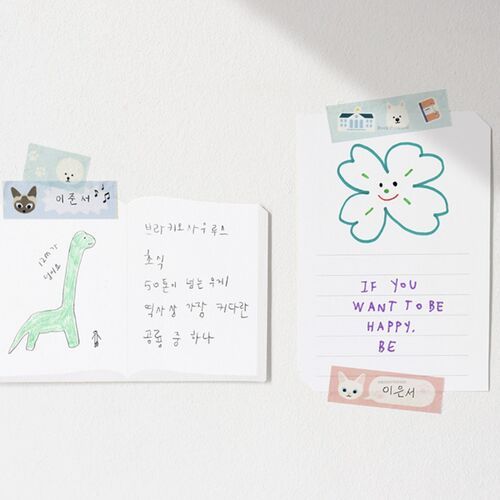 이준서
12m가
넘어요
브라키오사우루스
초식
50톤이 넘는 무게
역사상 가장 커다란
공룡 중 하나
IF YOU
WANT TO BE
HAPPY,
BE
이은서